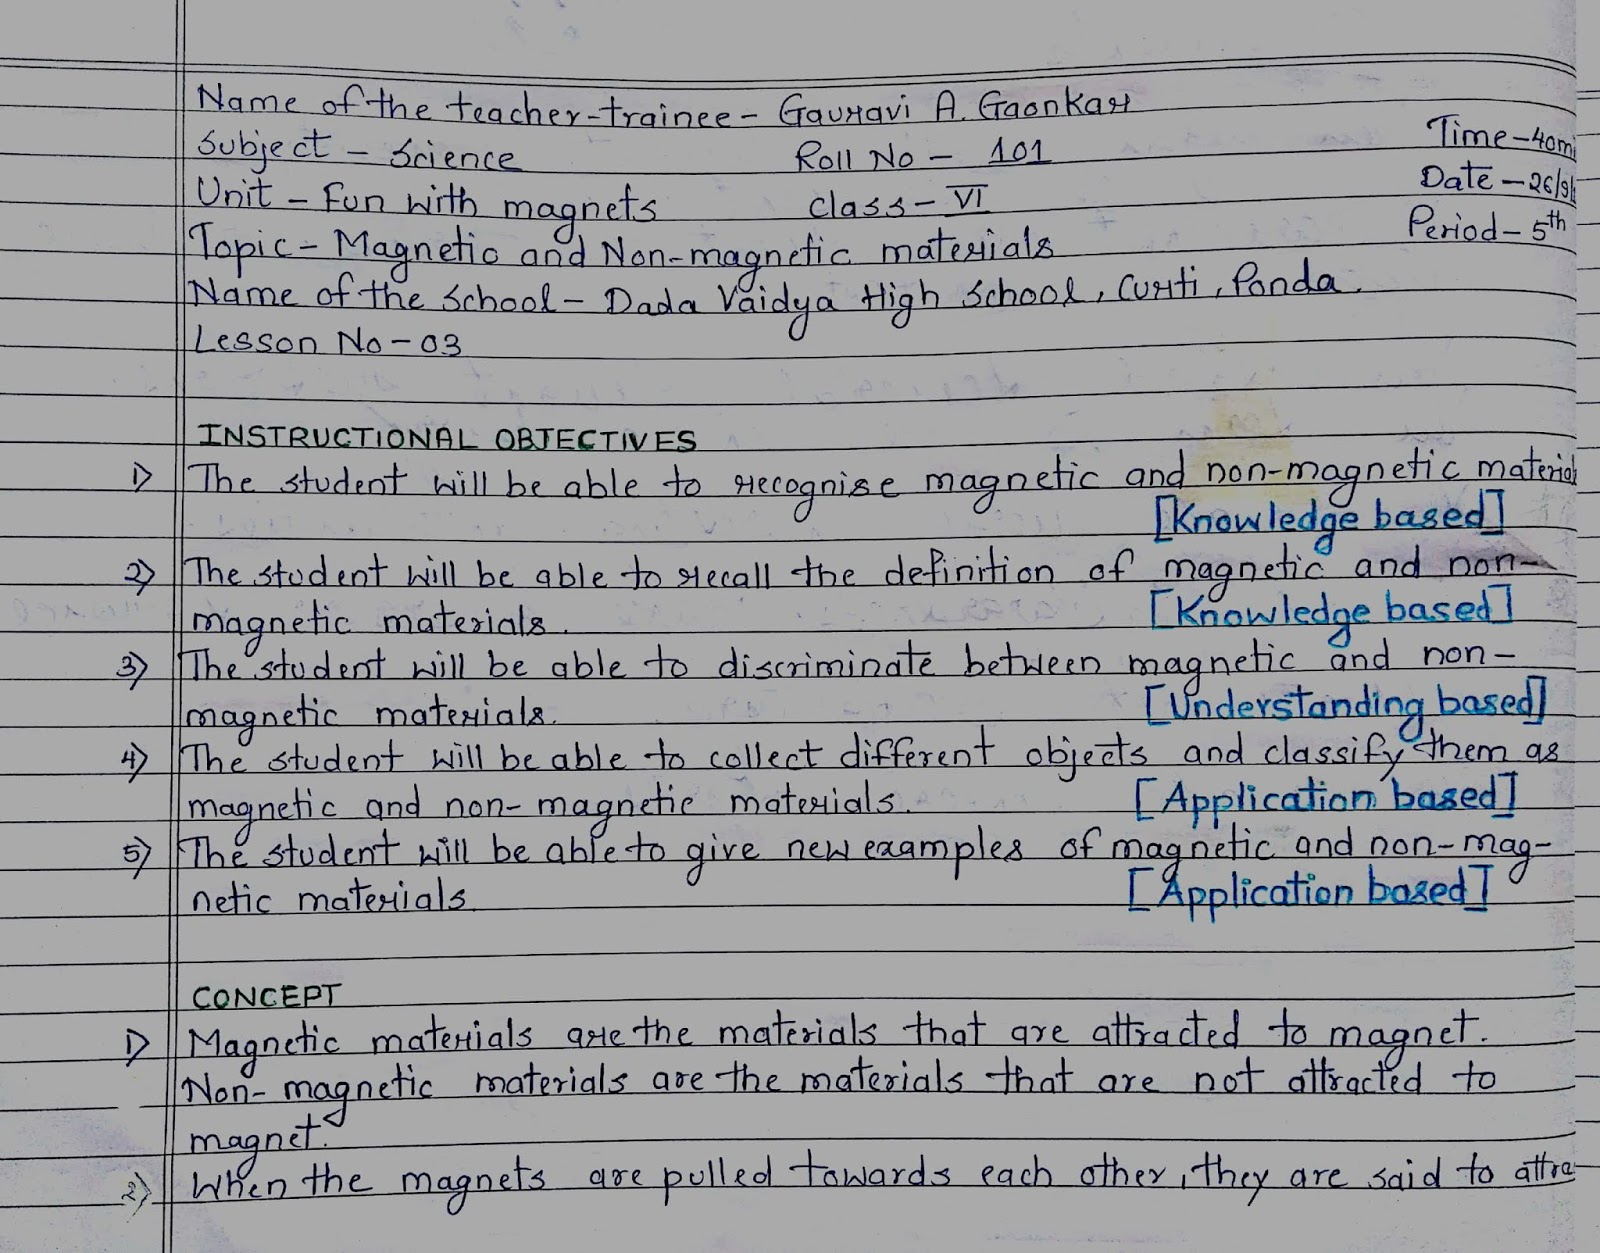 Name of the teacher-trainee - Gauravi A. Gaonkar
Subject - Science Roll No - 101 Time - 40mi
Unit - Fun with magnets Class - VI Date - 26/9/
Topic - Magnetic and Non-magnetic materials Period - 5th
Name of the School - Dada Vaidya High School, Curti, Ponda.
Lesson No - 03
INSTRUCTIONAL OBJECTIVES
1) The student will be able to recognise magnetic and non-magnetic material
[Knowledge based]
2) The student will be able to recall the definition of magnetic and non-
magnetic materials. [Knowledge based]
3) The student will be able to discriminate between magnetic and non-
magnetic materials. [Understanding based]
4) The student will be able to collect different objects and classify them as
magnetic and non-magnetic materials. [Application based]
5) The student will be able to give new examples of magnetic and non-mag-
netic materials [Application based]
CONCEPT
1) Magnetic materials are the materials that are attracted to magnet.
Non-magnetic materials are the materials that are not attracted to
magnet.
2) When the magnets are pulled towards each other, they are said to attra